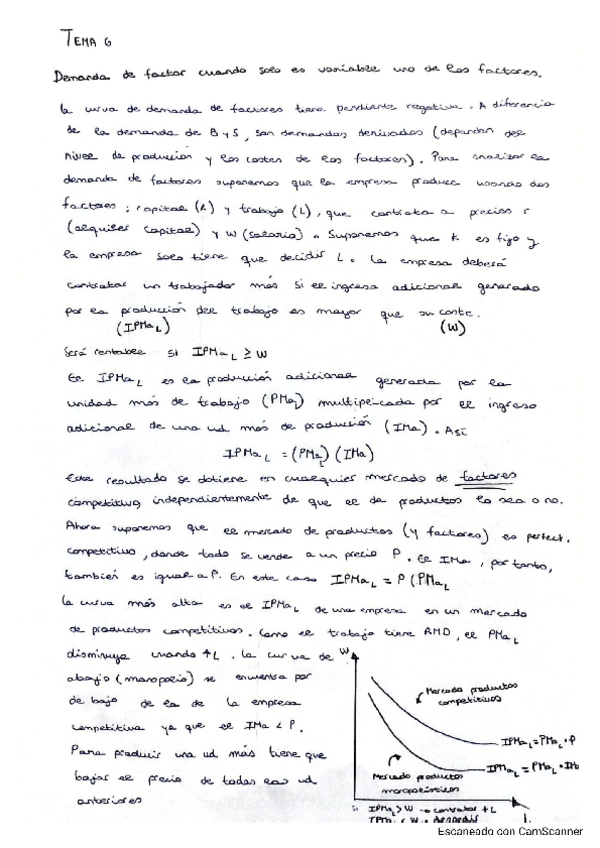 TEMA 6
Demanda de factor cuando solo es variable uno de los factores.
La curva de demanda de factores tiene pendiente negativa. A diferencia
de la demanda de B y S, son demandas derivadas (dependen del
nivel de producción y los costes de los factores). Para analizar la
demanda de factores suponemos que la empresa produce usando dos
factores: capital (K) y trabajo (L), que contrata a precios r
(alquiler capital) y W (salario). Suponemos que K es fijo y
la empresa solo tiene que decidir L. La empresa deberá
contratar un trabajador más si el ingreso adicional generado
por la producción del trabajo es mayor que su coste.
(IPMa L) (W)
Será rentable si IPMa L ≥ W
El IPMa L es la producción adicional generada por la
unidad más de trabajo (PMa L) multiplicada por el ingreso
adicional de una ud más de producción (IMa). Así
IPMa L = (PMa L) (IMa)
Este resultado se obtiene en cualquier mercado de factores
competitivo, independientemente de que el de productos lo sea o no.
Ahora suponemos que el mercado de productos (y factores) es perfect.
competitivo, donde todo se vende a un precio P. El IMa, por tanto,
también es igual a P. En este caso IPMa L = P (PMa L
La curva más alta es el IPMa L de una empresa en un mercado
de productos competitivos. Como el trabajo tiene RMD, el PMa L
disminuye cuando ↑L. La curva de
abajo (monopolio) se encuentra por
debajo de la de la empresa
competitiva ya que el IMa < P.
Para producir una ud más tiene que
bajar el precio de todas las ud
anteriores
W
Mercado productos
competitivos
IPMa L = PMa L · P
IPMa L = PMa L · IMa
Mercado productos
monopolísticos
Si IPMa L > W → contratar +L
IPMa L < W → despedir
L
Escaneado con CamScanner